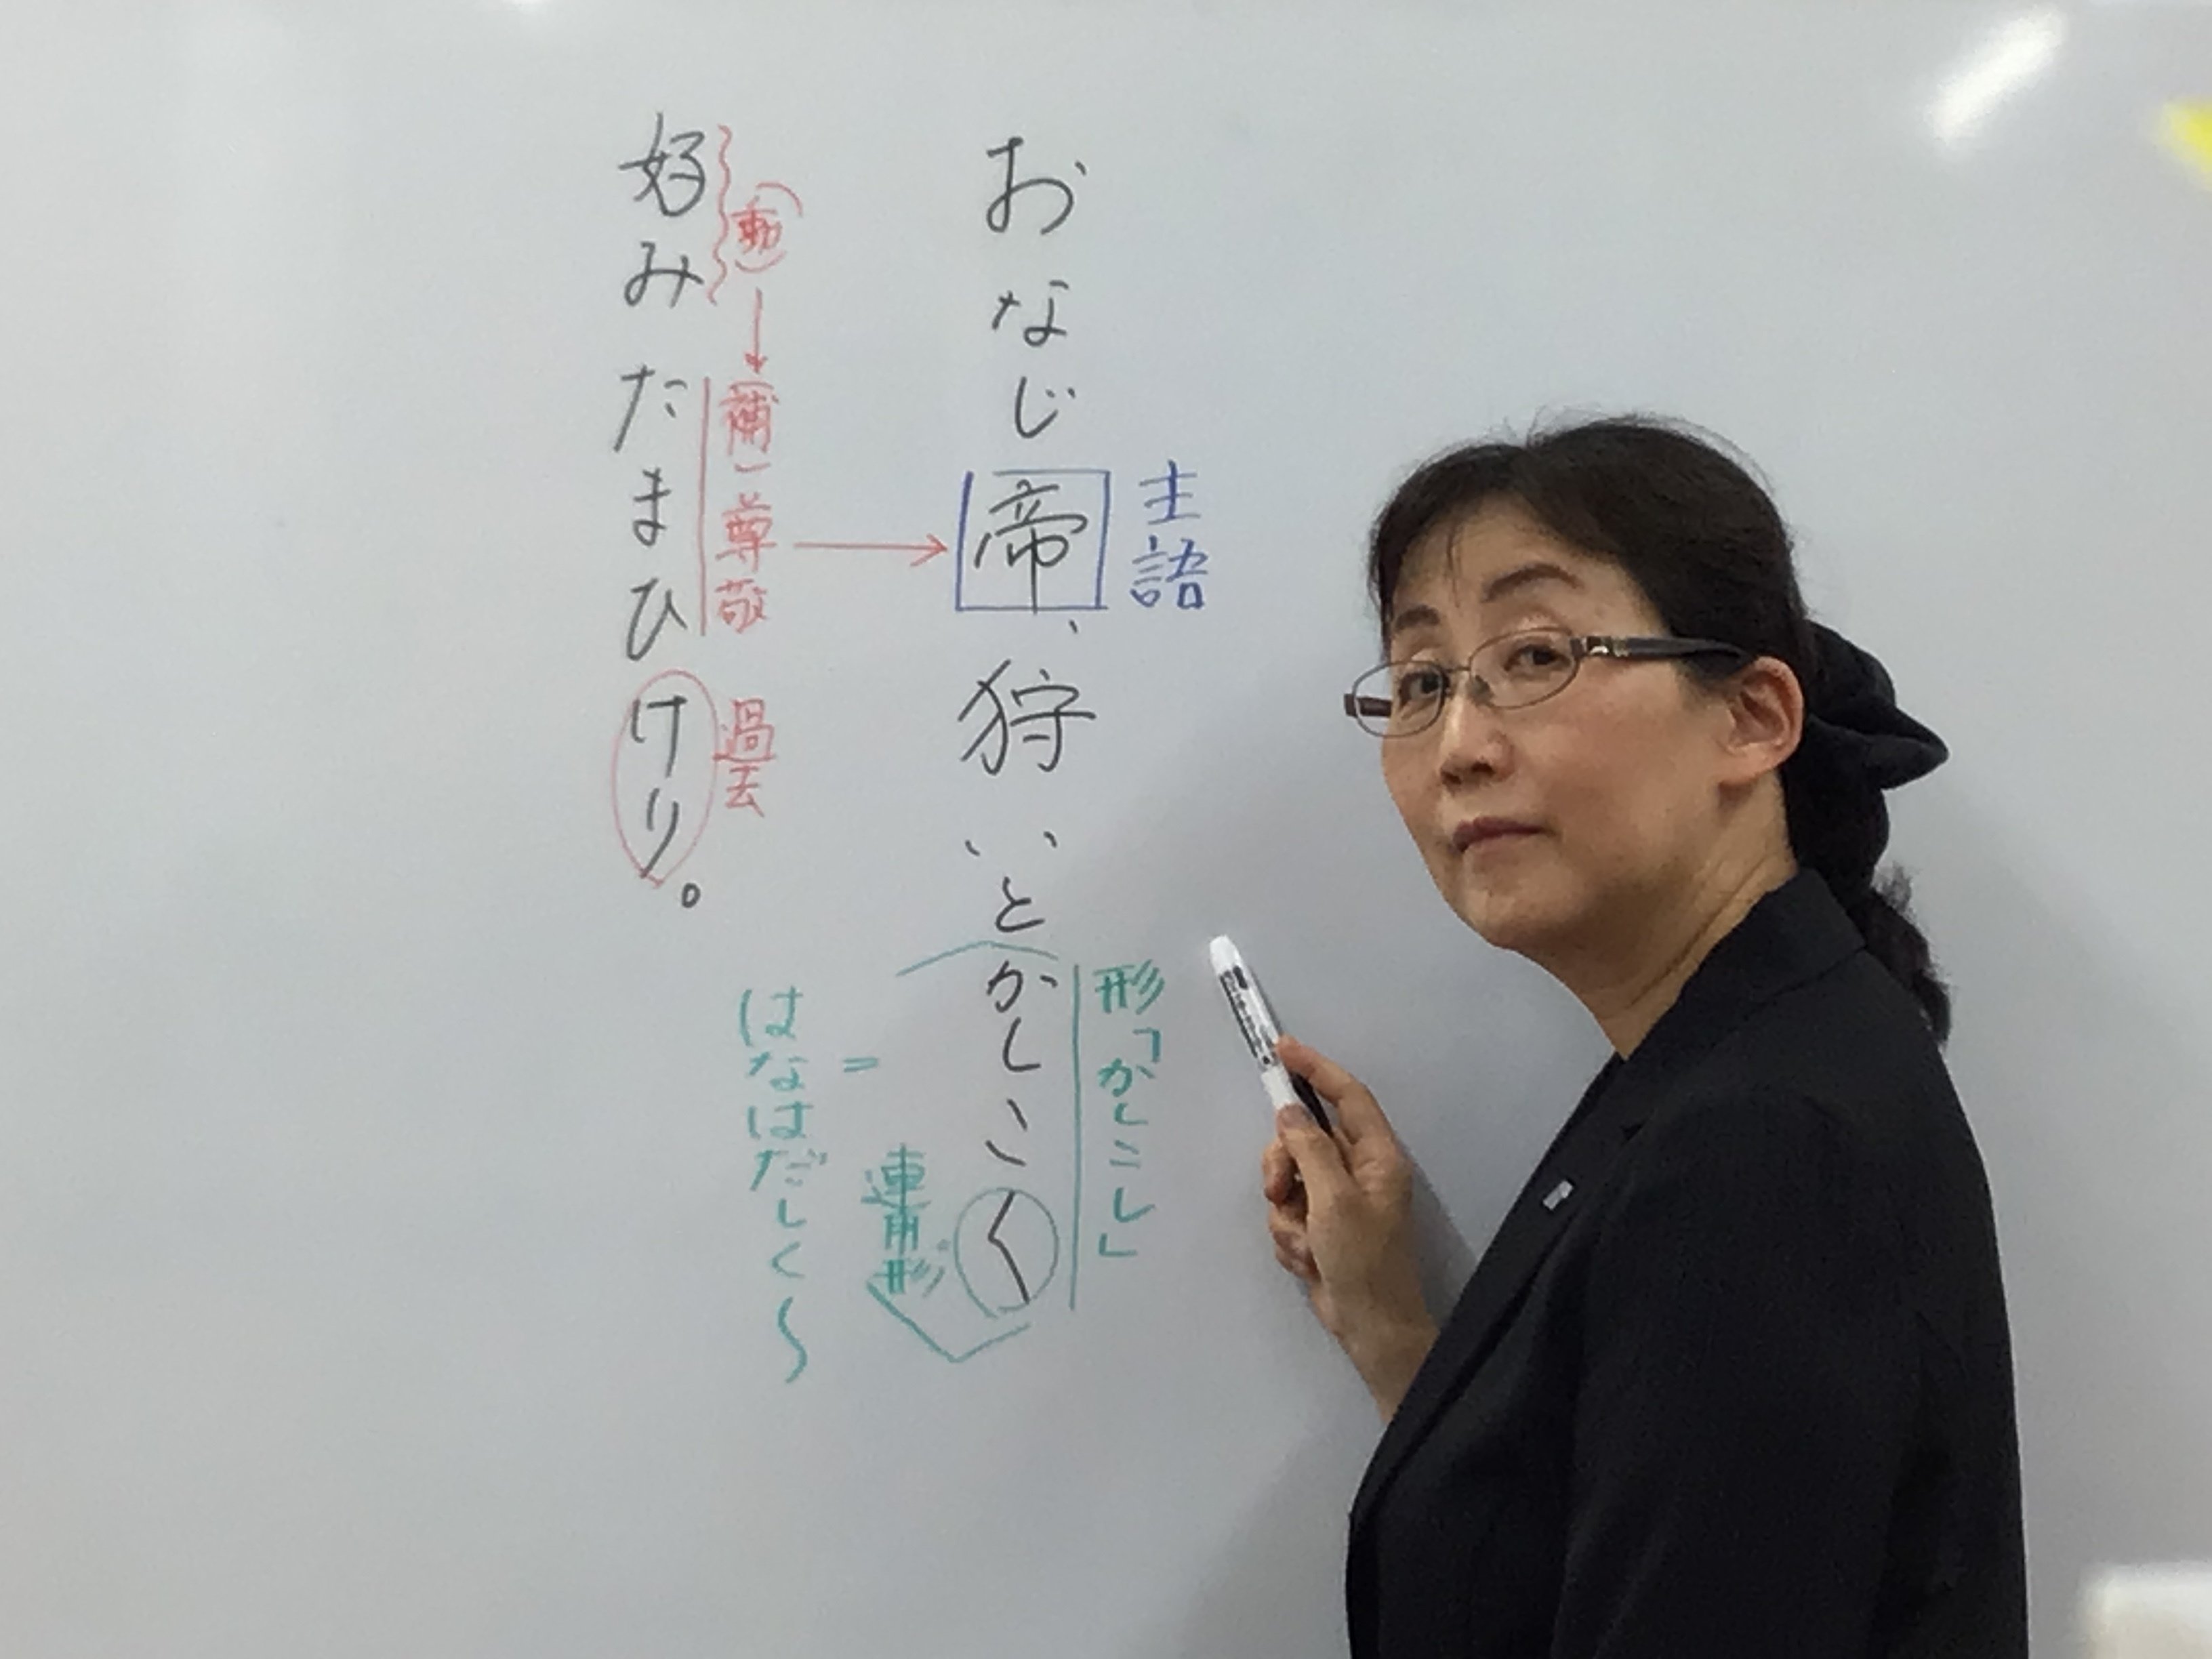 主語
おなじ帝、狩いとかしこく
形「かしこし」
連用形
＝
はなはだしく〜
(動)
補・尊敬
過去
好みたまひけり。